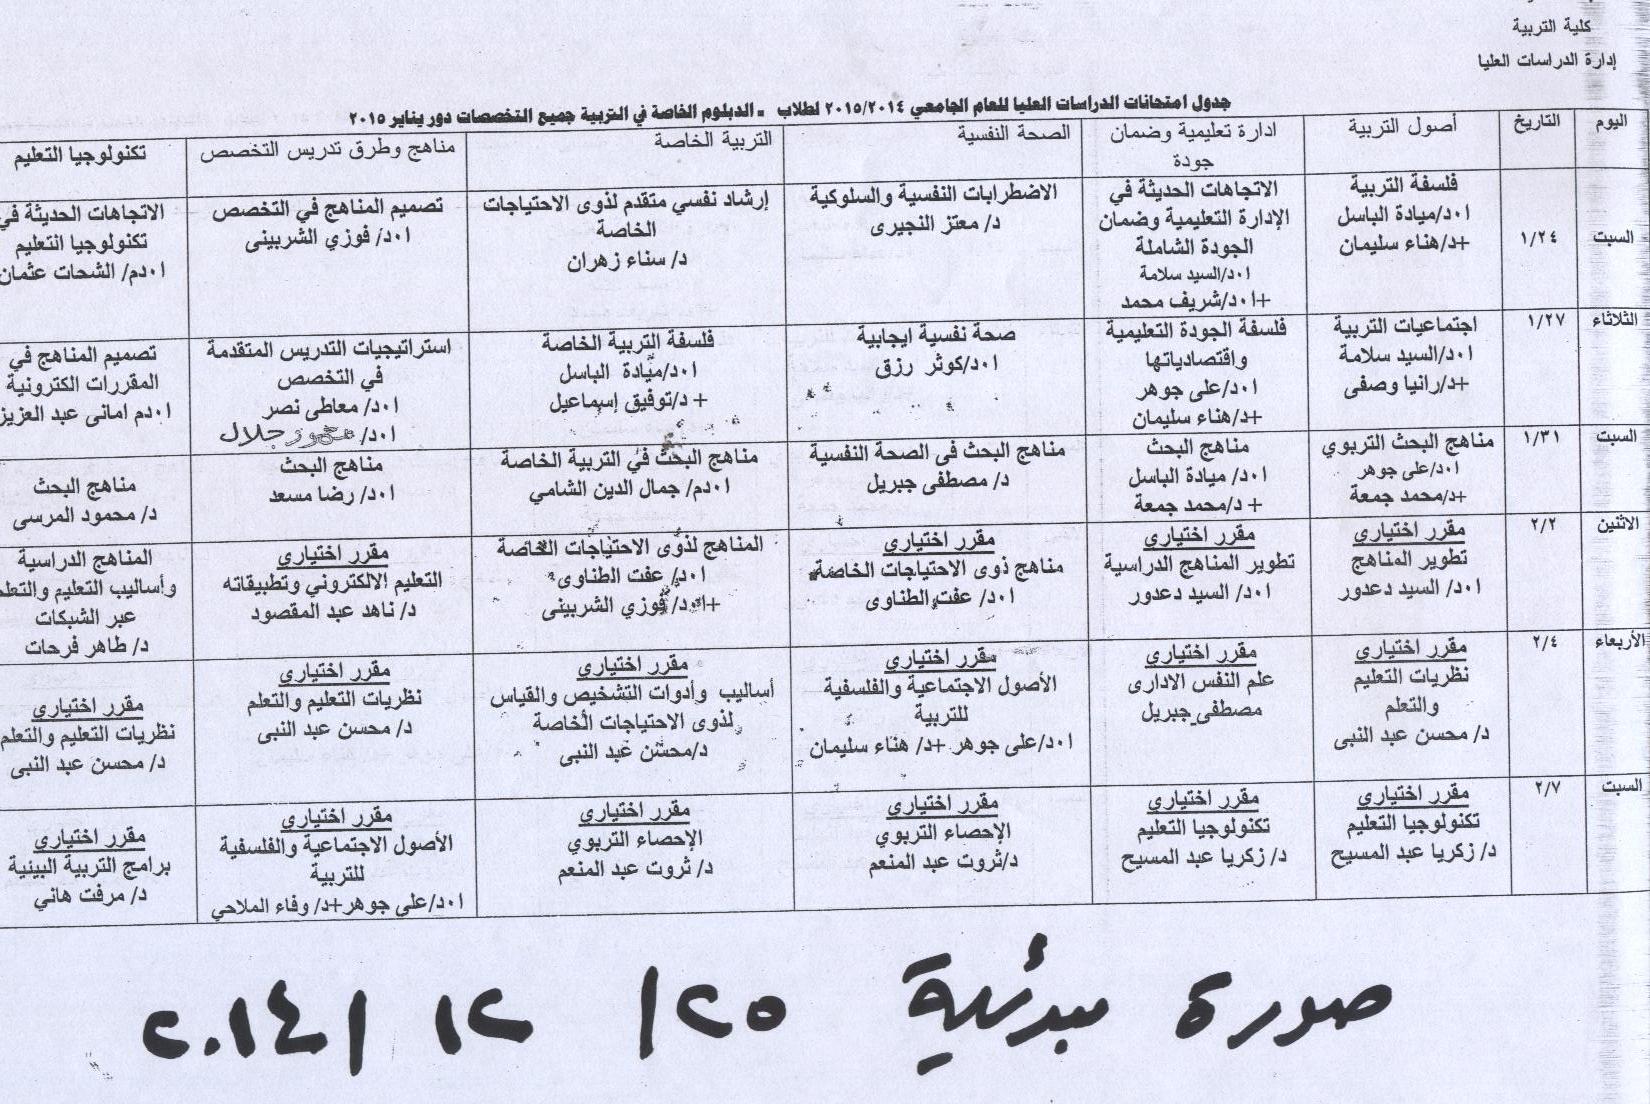 كلية التربية
إدارة الدراسات العليا
جدول امتحانات الدراسات العليا للعام الجامعي ٢٠١٥/٢٠١٤ لطلاب - الدبلوم الخاصة في التربية جميع التخصصات دور يناير ٢٠١٥
اليوم
التاريخ
أصول التربية
ادارة تعليمية وضمان
جودة
الصحة النفسية
التربية الخاصة
مناهج وطرق تدريس التخصص
تكنولوجيا التعليم
السبت
١/٢٤
فلسفة التربية
ا٠د/ميادة الباسل
+د/هناء سليمان
الاتجاهات الحديثة في
الإدارة التعليمية وضمان
الجودة الشاملة
ا٠د/السيد سلامة
+ا٠د/شريف محمد
الاضطرابات النفسية والسلوكية
د/ معتز النجيرى
إرشاد نفسي متقدم لذوى الاحتياجات
الخاصة
د/ سناء زهران
تصميم المناهج في التخصص
ا٠د/ فوزي الشربينى
الاتجاهات الحديثة في
تكنولوجيا التعليم
ا٠دم/ الشحات عثمان
الثلاثاء
١/٢٧
اجتماعيات التربية
ا٠د/السيد سلامة
+د/رانيا وصفى
فلسفة الجودة التعليمية
واقتصادياتها
ا٠د/على جوهر
+د/هناء سليمان
صحة نفسية ايجابية
ا٠د/كوثر رزق
فلسفة التربية الخاصة
ا٠د/ميادة الباسل
+ د/توفيق إسماعيل
استراتيجيات التدريس المتقدمة
في التخصص
ا٠د/ معاطى نصر
ا٠د/ جلال
تصميم المناهج في
المقررات الكترونية
ا٠دم امانى عبد العزيز
السبت
١/٣١
مناهج البحث التربوي
ا٠د/على جوهر
+د/محمد جمعة
مناهج البحث
ا٠د/ ميادة الباسل
+ د/محمد جمعة
مناهج البحث فى الصحة النفسية
د/ مصطفى جبريل
مناهج البحث في التربية الخاصة
ا٠دم/ جمال الدين الشامي
مناهج البحث
ا٠د/ رضا مسعد
مناهج البحث
د/ محمود المرسى
الاثنين
٢/٢
مقرر اختياري
تطوير المناهج
ا٠د/ السيد دعدور
مقرر اختياري
تطوير المناهج الدراسية
ا٠د/ السيد دعدور
مقرر اختياري
مناهج ذوى الاحتياجات الخاصة
ا٠د/ عفت الطناوى
المناهج لذوى الاحتياجات الخاصة
ا٠د/ عفت الطناوى
+ا٠د/ فوزي الشربينى
مقرر اختياري
التعليم الالكتروني وتطبيقاته
د/ ناهد عبد المقصود
المناهج الدراسية
وأساليب التعليم والتعلم
عبر الشبكات
د/ طاهر فرحات
الأربعاء
٢/٤
مقرر اختياري
نظريات التعليم
والتعلم
د/ محسن عبد النبى
مقرر اختياري
علم النفس الادارى
مصطفى جبريل
مقرر اختياري
الأصول الاجتماعية والفلسفية
للتربية
ا٠د/على جوهر +د/ هناء سليمان
مقرر اختياري
أساليب وأدوات التشخيص والقياس
لذوى الاحتياجات الخاصة
د/محسن عبد النبى
مقرر اختياري
نظريات التعليم والتعلم
د/ محسن عبد النبى
مقرر اختياري
نظريات التعليم والتعلم
د/ محسن عبد النبى
السبت
٢/٧
مقرر اختياري
تكنولوجيا التعليم
د/ زكريا عبد المسيح
مقرر اختياري
تكنولوجيا التعليم
د/ زكريا عبد المسيح
مقرر اختياري
الإحصاء التربوي
د/ثروت عبد المنعم
مقرر اختياري
الإحصاء التربوي
د/ ثروت عبد المنعم
مقرر اختياري
الأصول الاجتماعية والفلسفية
للتربية
ا٠د/على جوهر+د/ وفاء الملاحي
مقرر اختياري
برامج التربية البيئية
د/ مرفت هاني
صورة مبدئية ٢٥/ ١٢ /٢٠١٤